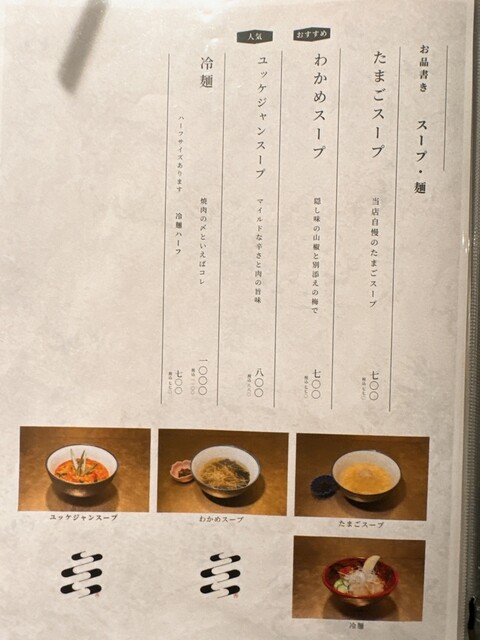 お品書き　スープ・麺
たまごスープ
当店自慢のたまごスープ
七〇〇
おすすめ
わかめスープ
隠し味の山椒と別添えの梅で
七〇〇
人気
ユッケジャンスープ
マイルドな辛さと肉の旨味
八〇〇
冷麺
焼肉の〆といえばコレ
一〇〇〇
ハーフサイズあります
冷麺ハーフ
七〇〇
ユッケジャンスープ
わかめスープ
たまごスープ
冷麺